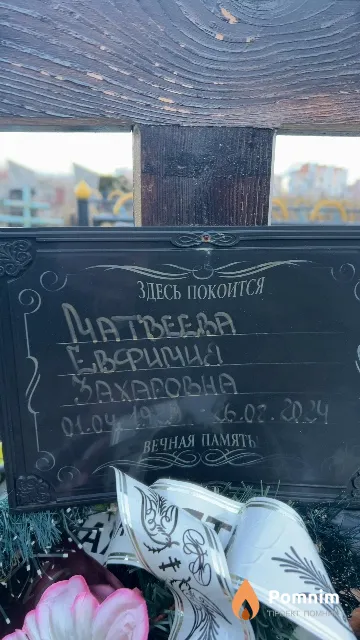 ЗДЕСЬ ПОКОИТСЯ
МАТВЕЕВА
ЕВФИМИЯ
ЗАХАРОВНА
26.02.2024
ВЕЧНАЯ ПАМЯТЬ
Pomnim